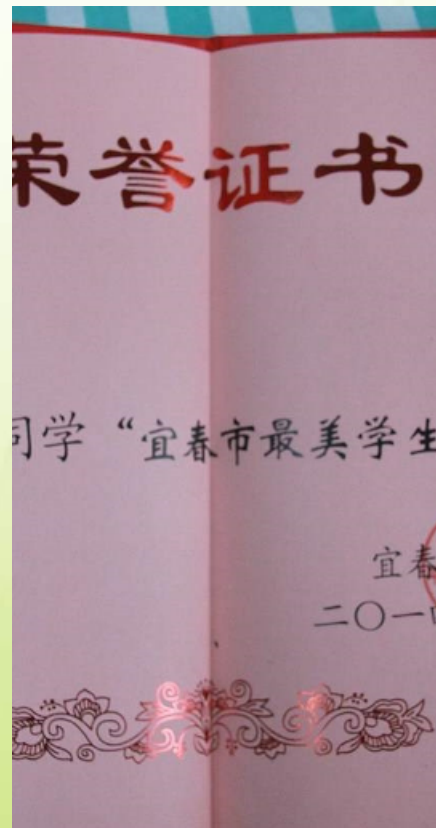 荣誉证书
同学“宜春市最美学生
宜春
二〇一